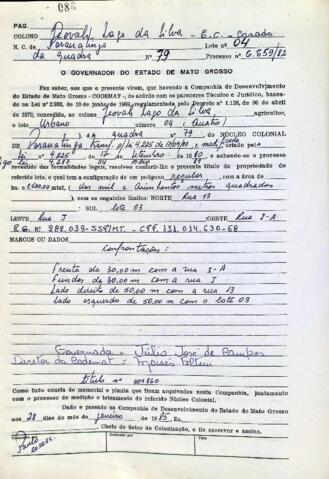 086
PAG
COLONO Jeovah Lago da Silva - E.C. - Casado
N. C. de Paranatinga Lote nº 04
da quadra Nº 79 Processo C.659/82
O GOVERNADOR DO ESTADO DE MATO GROSSO
Faz saber, aos que a presente virem, que havendo a Companhia de Desenvolvimento
do Estado de Mato Grosso - CODEMAT -, de acôrdo com os pareceres Técnico e Jurídico, basea-
do na Lei nº 2.933, de 10 de junho de 1969, regulamentada pelo Decreto nº 1.138, de 30 de abril
de 1970, concedido, ao colono Jeovah Lago da Silva, agricultor,
o lote Urbano número 04 (quatro)
da quadra nº 79 DO NÚCLEO COLONIAL
DE Paranatinga, modificado pela
Lei nº 4.225 de 17 de Setembro 1980 e achando-se o processo
revestido das formalidades legais, resolveu conferir-lhe o presente título de propriedade do
referido lote, o qual tem a configuração de um polígono regular com a área de
1.500,00 m² (um mil e quinhentos metros quadrados)
com os seguintes limites: NORTE Rua 13
: SUL lote 03
LESTE Rua J :OESTE Rua J-A
R.G. Nº 288.039-SSP/MT. - CPF. 131.014.630-68
MARCOS OU DADOS
Confrontações:
Frente de 30,00 m com a rua J-A
Fundos de 30,00 m com a rua J
Lado direito de 50,00 m com a rua 13
Lado esquerdo de 50,00 m com o lote 03
Governador = Júlio José de Campos
Diretor da Codemat = Moisés Feltrin
título nº 001860
Como tudo consta do memorial e planta que ficam arquivados nesta Companhia, juntamente
com o processo de medição e loteamento do referido Núcleo Colonial.
Dado e passado na Companhia de Desenvolvimento do Estado do Mato Grosso
aos 28 dias do mês de janeiro de 1985. Eu,
, Chefe do Setor de Colonização, o fiz escrever e assino.